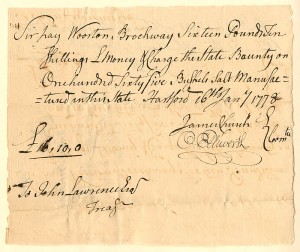 Sir Pay Wooster Brockway Sixteen Pounds Ten
Shillings L Money & Charge the State Bounty on
One hundred Sixty five Bushels Salt Manufac=
=tured in this State Hartford 16th Jany 1778
James Church
O Ellsworth
Comtte
£16,10,0
To John Lawrence Esqr
Treasr